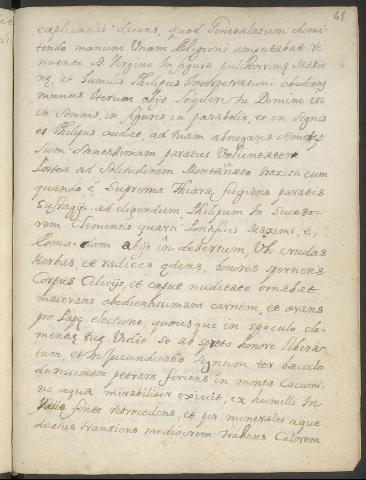 48
explicavit dicens, quod Generalatum dimi-
tendo manum Unam Religioni amputabat. Ve
nuente à Virgine In figura pulcherrima Matro
næ, et humilis Philipus Interpretationi obediens
munus iterum abijt Sequere te Domine in
in Somnis, in figuris, in parabolis, et in Signis
et Philipus audiet, ad tuam abnegans
sum Sanctissimam paratus Voluntatem
Postea ad Solitudinem Montaniato traxisti cum
quando, è Suprema Thiara fugiens paratis
Suffragijs ad eligendum Philipum In Suceso-
rem Clementis quarti Pontificis Maximi, è,
Roma clam abijt in desertum, Ubi crudas
herbas, et radices edens, honores spernens
Corpus Cilicijs, et caput nuditate ornabat
macerans obedientissimam carnem, et orans
pro Papæ electione, quousque in speculo cle-
mentiæ tuæ Vidit se ab spreto honore libera-
tum, et in Jucunditatis Signum ter baculo
durissimam petram feriens in montis Cacumi-
ne aqua mirabiliter exivit, ex humilli In
fonte retrocedens, et per minerales aque
ductus transiens mediocrem trahens Calorem